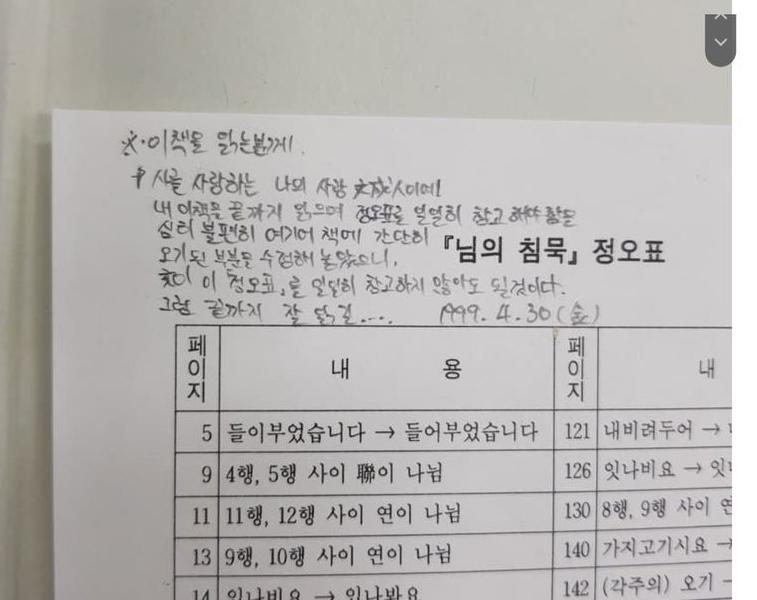 ※.이책을 읽는분께.
시를 사랑하는 나의 사랑 文成人에게!
내 이책을 끝까지 읽으며 정오표를 일일히 참고해야 함을
심히 불편히 여기어 책에 간단히
오기된 부분을 수정해 놓았으니,
이 「정오표」를 일일히 참고하지 않아도 될것이다.
그럼 끝까지 잘 읽길.... 1999. 4. 30 (金)
『님의 침묵』 정오표
페이지 내 용 페이지 내
5 들이부었습니다 → 들어부었습니다 121 내비려두어 →
9 4행, 5행 사이 聯이 나뉨 126 잇나비요 → 잇
11 11행, 12행 사이 연이 나뉨 130 8행, 9행 사이 연
13 9행, 10행 사이 연이 나뉨 140 가지고기시요 →
14 잇나비요 → 잇나봐요 142 (각주의) 오기 →